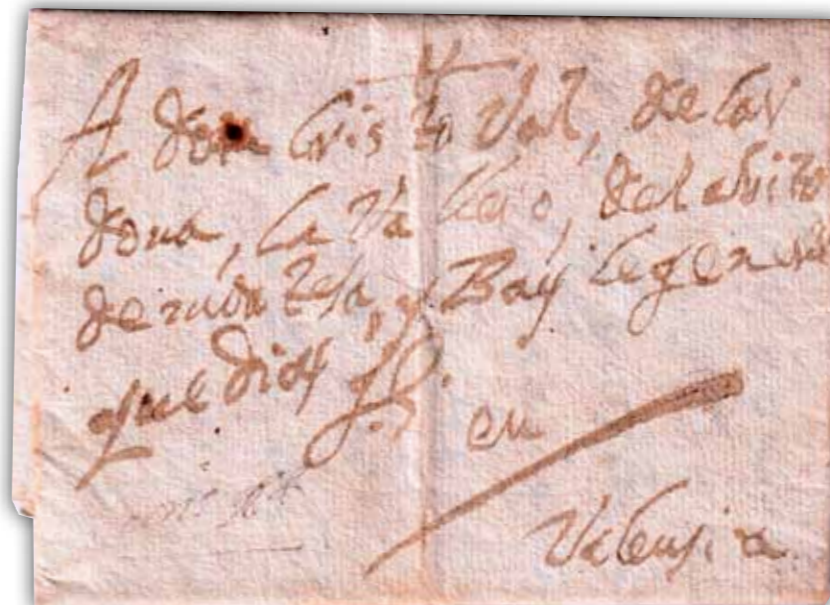 A don Cristoval, de Car
dona, Cavallero, del avito
de muntesa, y Bayle general
que Dios gde.
en
Valensia